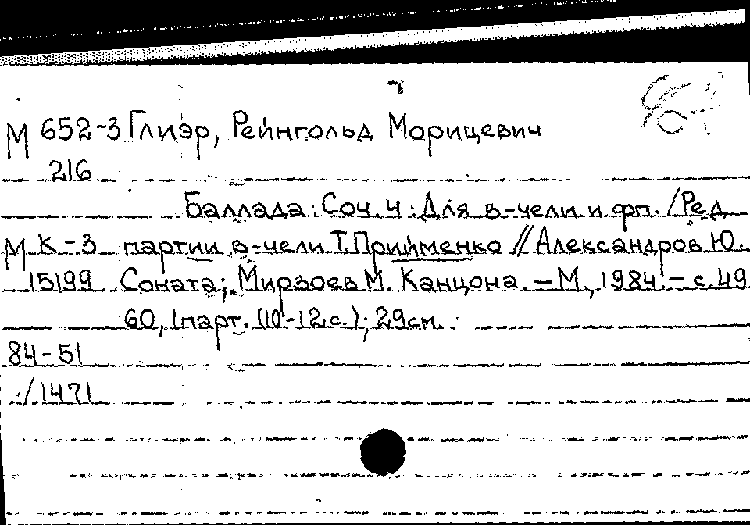 М 652-3 Глиэр, Рейнгольд Морицевич
216
Баллада: Соч. 4: Для в-чели и фп. / Ред.
МК-3 партии в-чели Т. Прийменко // Александров Ю.
15199 Соната; Мирзоев М. Канцона. – М, 1984 – с. 49
60, 1 парт. (10-12 с.); 29 см.
84-51
/1471